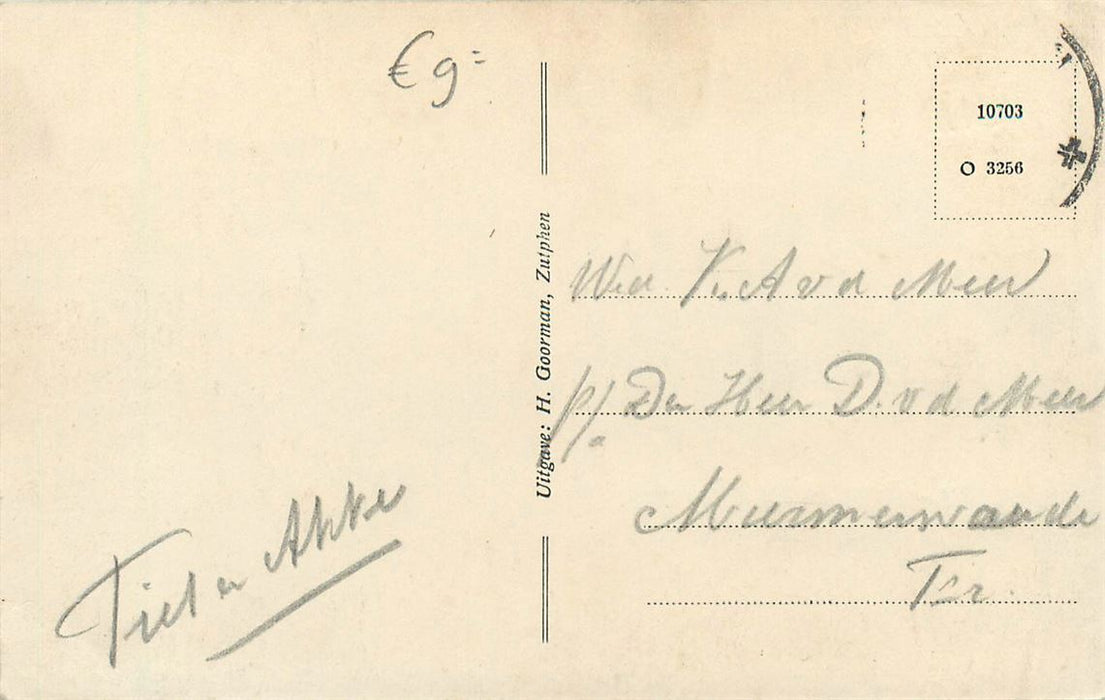 € 9=
10703
O 3256
Uitgave: H. Goorman, Zutphen
Wed. K. A v d Meer
p/a Den Heer D. v d Meer
Murmerwoude
Fr.
Tiet en Akke